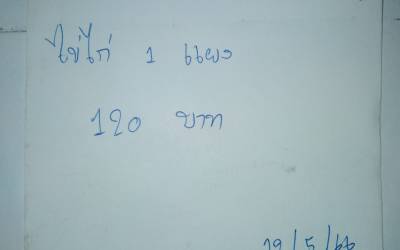 ไข่ไก่ 1 แผง
120 บาท
19/5/66